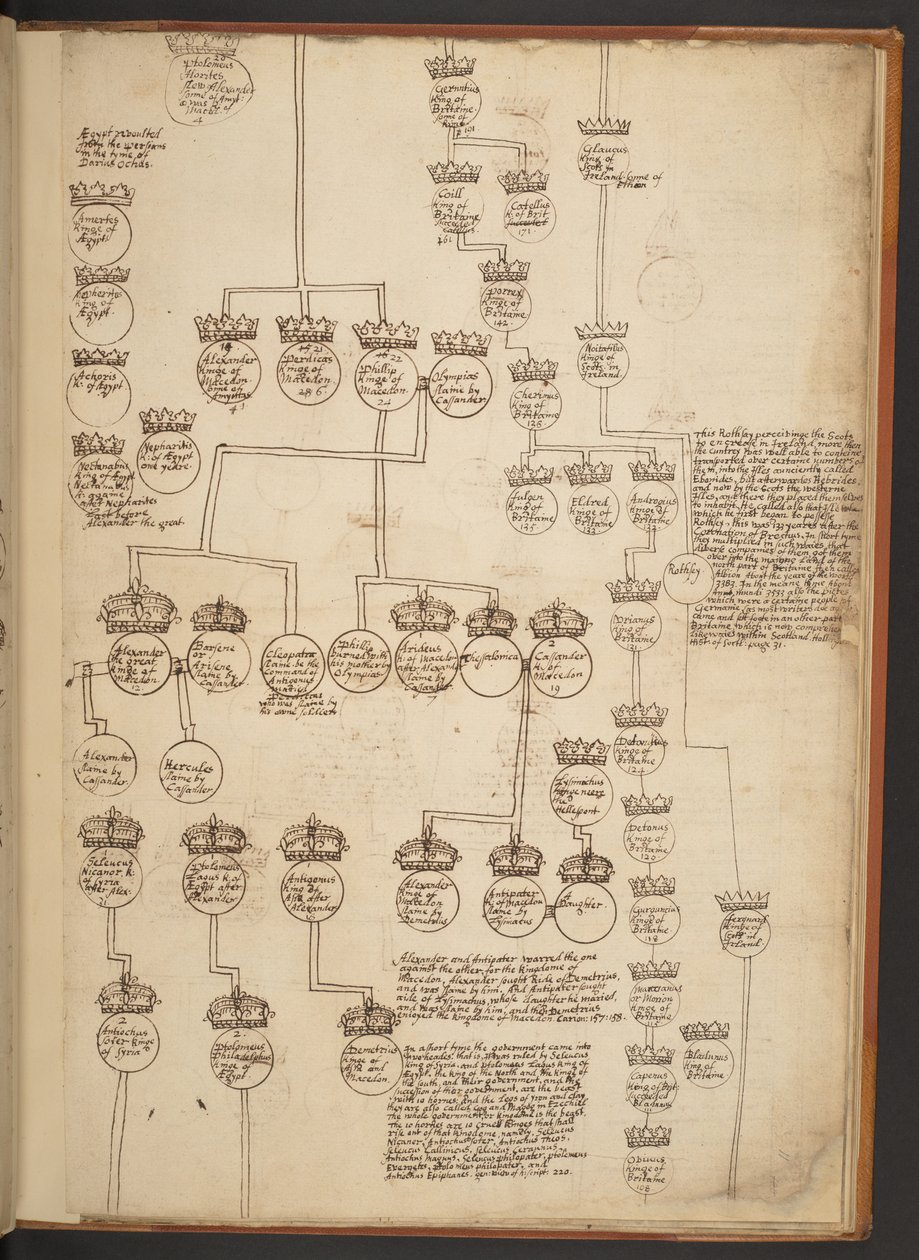 20
Ptolomeus
Alorites
slew Alexander
sonne of Amyt:
& was k. of
Maced.
4
Ægypt revoulted
from the Persians
in the tyme of
Darius Ochus.
Amertes
kinge of
Ægypt.
Nepherites
king of
Ægypt.
Achoris
k: of Ægypt
Nepharitis
k: of Ægypt
one yeare.
Nectanabus
king of Ægypt
after Nepharites
last before
Alexander the great.
Gerontius
king of
Britaine.
sonne of
101
Coill
king of
Britaine
succeeded
Catellus
161
Catellus
k: of Brit
succeeded
171
Porrex
kinge of
Britaine
142.
Cherinus
king of
Britaine
136.
Fulgen
king of
Britaine
135.
Eldred
kinge of
Britaine
Androgius
kinge of
Britaine
132
Glaucus
king of
Scots in
Ireland. sonne of
Ethion
Noitafilus
kinge of
Scots in
Ireland.
Alexander
kinge of
Macedon.
sonne of
Amyntas
21
Perdicas
kinge of
Macedon.
22
Phillip
kinge of
Macedon.
24
Olympias
slaine by
Cassander
This Rothsay perceivinge the Scots
to encrease in Ireland, more then
the cuntrey was well able to conteine
transported over certaine numbers of
them, into the Iles aunciently called
Ebonides, but afterwardes Hebrides,
and now by the Scots the westerne
Iles, and there they placed them selves
to inhabit. He called also that Ile
which he first began to possesse
Rothsey, this was 133 yeares after the
Coronation of Brechus. In short tyme
they multiplied in such wise, that
diverse companies of them, got them
over into the mayne Land of the
north part of Britaine then called
Albion About the yeare of the world
3383. In the meane tyme About
Anno mundi 3533 also the pictes
which were a certaine people of
Germanie (as most writers doe agree)
came and set foote in an other part of
Britaine which is now comprehended
likewaies within Scotland. Holl:
Hist: of Scotl: page 31.
Rothsey
Alexander
the great
kinge of
Macedon.
12.
Barsene
or
Arisene
slaine by
Cassander
Cleopatra
slaine be the
command of
Antigonus
maried
Perdiccas
who was slaine by
his owne soldiers
Phillip
burned with
his mother by
Olympias
Arideus
k: of Macedon
after Alexander
slaine by
Cassander
7
Thessalonica
2
Cassander
k: of
Macedon
19
Urianus
king of
Britaine
131.
Alexander
slaine by
Cassander.
Hercules
slaine by
Cassander
Lysimachus
kinge neere
the
Hellespont
kinge of
Britaine
124
Detonus
kinge of
Britaine
120
Seleucus
Nicanor. k:
of Syria
after Alex.
31
Ptolomeus
Lagus k: of
Ægypt after
Alexander
Antigonus
king of
Asia after
Alexander
Alexander
kinge of
Macedon
slaine by
Demetrius
Antipater
k: of Macedon
slaine by
Lysimacus
A
Daughter
Gurguncius
kinge of
Britaine
118
Ferquard
kinge of
Scots in
Irland.
Alexander and Antipater warred the one
against the other, for the kingdome of
Macedon, Alexander sought aide of Demetrius,
and was slaine by him, And Antipater sought
aide of Lysimachus, whose daughter he maried,
and was slaine by him, and then Demetrius
enjoyed the kingdome of Macedon. Carion: 157: 158.
Maercianus
or Morion
kinge of
Britaine
113
Bladunus
king of
Britaine
Capenus
king of Brit:
succeeded
Bladunus
Ovinus
kinge of
Britaine
108
2
Antiochus
Soter kinge
of Syria
2.
Ptolomeus
Philadelphus
kinge of
Ægypt
Demetrius
kinge of
Asia and
Macedon.
In a short tyme the government came into
two heades. that is, it was ruled by Seleucus
king of Syria. and Ptolomeus Lagus king of
Ægypt. the king of the North and the kinge of
the south, and their government, and the
succession of ther government, are the beast
with 10 hornes: And the Legs of yron and clay,
they are also called Gog and Magog in Ezechiel
The whole government or kingdome is the beast,
The 10 hornes are 10 cruell kinges that shall
rise out of that kingdome, namely, Seleucus
Nicanor, Antiochus Soter, Antiochus Theos,
Seleucus Callinicus, Seleucus Ceraunus,
Antiochus Magnus, Seleucus philopater, ptolomeus
Evergetes, ptolomeus philopater, and
Antiochus Epiphanes. gen: view of h: script: 220.